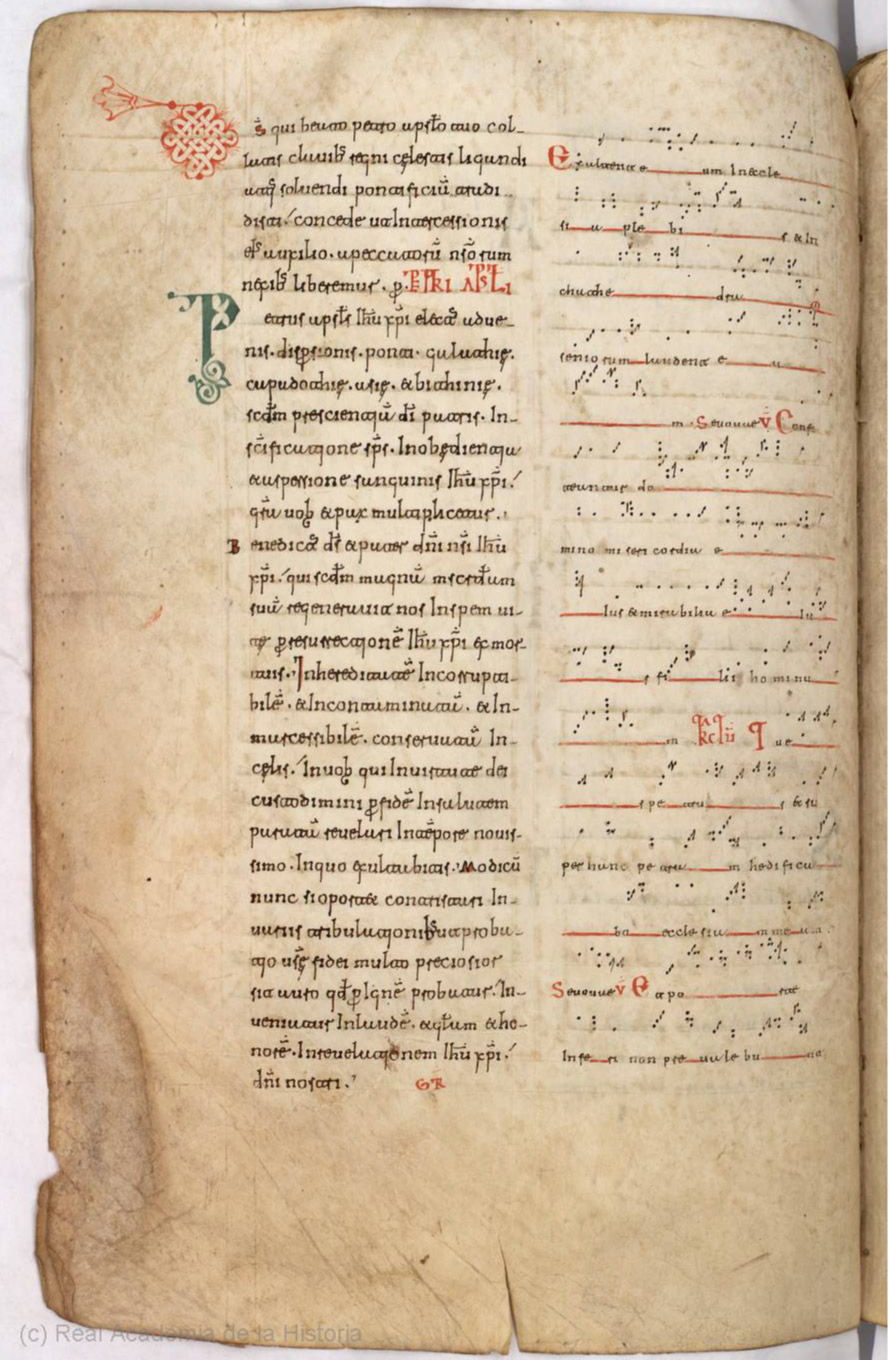 D̅s qui beato petro apsto tuo col-
latis clauibs regni cęlestis ligandi
atq soluendi pontificiū tradi-
disti concede ut Intercessionis
eīs auxilio a peccatorū nr̄orum
nexibs liberemur. p̱. EPLA PETRI APSLI
Petrus apsls Ihu xpi electis adue-
nis. dispersionis. ponti. galatię.
capadotię. asię. & bithinię.
scdm prescientiā di patris. In
scificatione sps. In obędientia
& aspersione sanguinis Ihu xpi
gra uob & pax multiplicetur.
Benedict ds & pater dni nsi Ihu
xpi qui scdm magnā mscrdiam
suā regenerauit nos In spem ui-
tę p resurrectionē Ihu xpi ex mor-
tuis. In hereditatē Incorrupti-
bilē. & Incontaminatā. & In-
marcessibilē. conseruatā In
cęlis. In uob qui In uirtute dei
custodimini p fidē In salutem
paratā reuelari In tēpore nouis-
simo. In quo exultabitis. Modicū
nunc si oportet contristari In
uariis tribulationibs ut proba-
tio urę fidei multo preciosior
sit auro qd p Ignē probatur. In-
ueniatur In laudē. & glam & ho-
norē. In reuelationem Ihu xpi
dni nostri. GR
Exultent e um In eccle
si a ple bi s & In
cathe dra
seniorum laudent e u
m. Seuouae V Confi
teantur do
mino misericordia e
ius & mirabilia e iu
s fi lii hominu
m Tu e
s pe tru s & su
per hanc petra m hedifica
bo ecclesia m mea m
Seuouae V Et po rte
Infe ri non preualebu nt
(c) Real Academia de la Historia